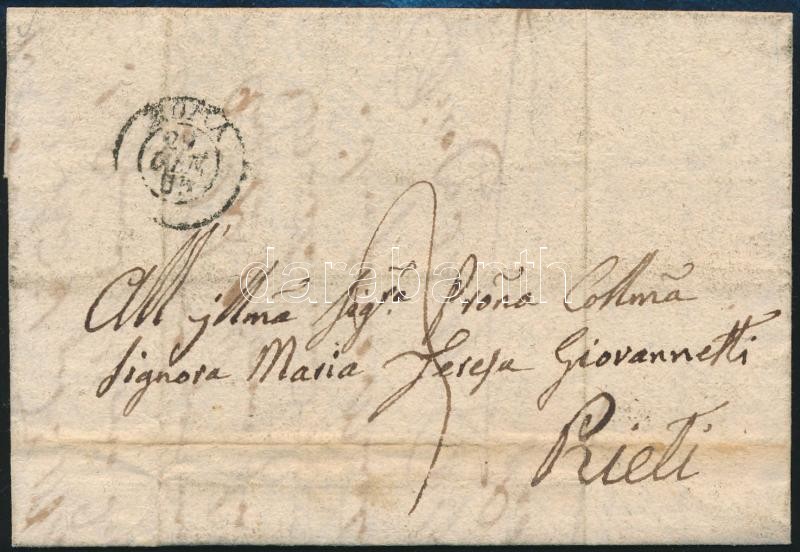 ROMA
29
GEN
All' Illma Sigra Proña Collma
Signora Maria Teresa Giovannetti
Rieti
darabanth